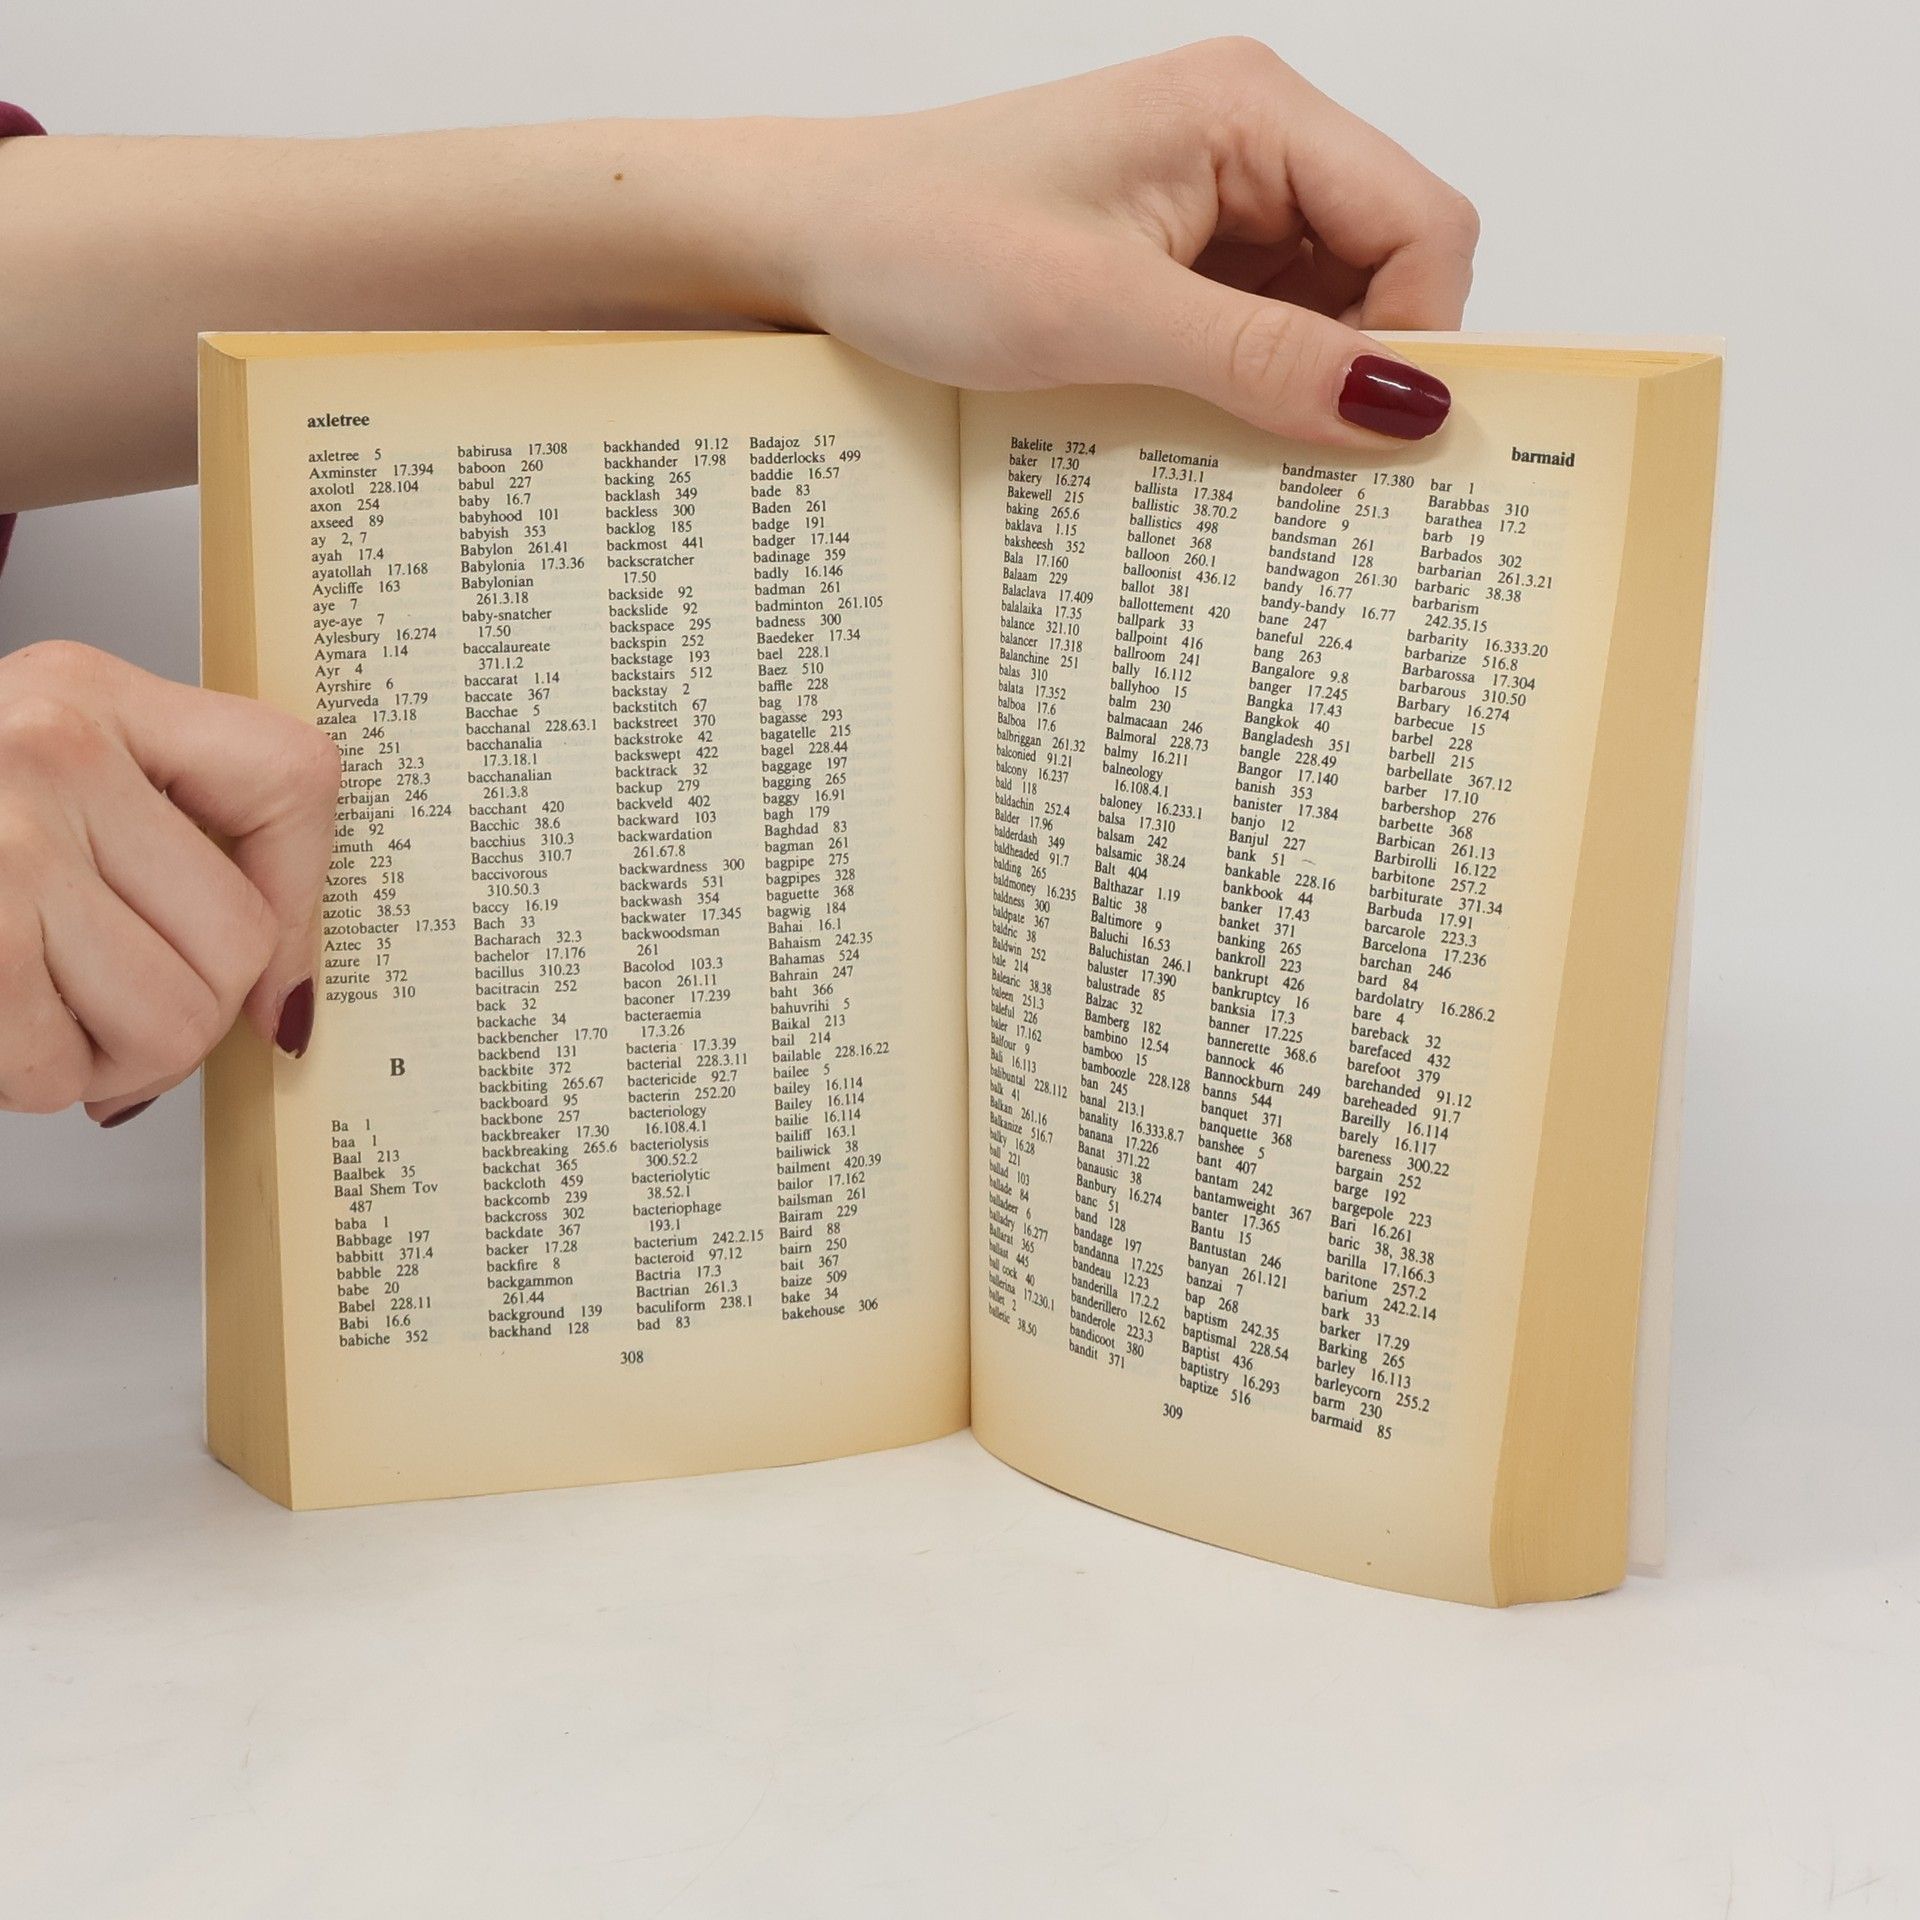 axletree
axletree 5
Axminster 17.394
axolotl 228.104
axon 254
axseed 89
ay 2, 7
ayah 17.4
ayatollah 17.168
Aycliffe 163
aye 7
aye-aye 7
Aylesbury 16.274
Aymara 1.14
Ayr 4
Ayrshire 6
Ayurveda 17.79
azalea 17.3.18
246
251
32.3
278.3
246
16.224
92
464
223
Azores 518
azoth 459
azotic 38.53
azotobacter 17.353
Aztec 35
azure 17
azurite 372
azygous 310
B
Ba 1
baa 1
Baal 213
Baalbek 35
Baal Shem Tov
487
baba 1
Babbage 197
babbitt 371.4
babble 228
babe 20
Babel 228.11
Babi 16.6
babiche 352
babirusa 17.308
baboon 260
babul 227
baby 16.7
babyhood 101
babyish 353
Babylon 261.41
Babylonia 17.3.36
Babylonian
261.3.18
baby-snatcher
17.50
baccalaureate
371.1.2
baccarat 1.14
baccate 367
Bacchae 5
bacchanal 228.63.1
bacchanalia
17.3.18.1
bacchanalian
261.3.8
bacchant 420
Bacchic 38.6
bacchius 310.3
Bacchus 310.7
baccivorous
310.50.3
baccy 16.19
Bach 33
Bacharach 32.3
bachelor 17.176
bacillus 310.23
bacitracin 252
back 32
backache 34
backbencher 17.70
backbend 131
backbite 372
backbiting 265.67
backboard 95
backbone 257
backbreaker 17.30
backbreaking 265.6
backchat 365
backcloth 459
backcomb 239
backcross 302
backdate 367
backer 17.28
backfire 8
backgammon
261.44
background 139
backhand 128
backhanded 91.12
backhander 17.98
backing 265
backlash 349
backless 300
backlog 185
backmost 441
backscratcher
17.50
backside 92
backslide 92
backspace 295
backspin 252
backstage 193
backstairs 512
backstay 2
backstitch 67
backstreet 370
backstroke 42
backswept 422
backtrack 32
backup 279
backveld 402
backward 103
backwardation
261.67.8
backwardness 300
backwards 531
backwash 354
backwater 17.345
backwoodsman
261
Bacolod 103.3
bacon 261.11
baconer 17.239
bacteraemia
17.3.26
bacteria 17.3.39
bacterial 228.3.11
bactericide 92.7
bacterin 252.20
bacteriology
16.108.4.1
bacteriolysis
300.52.2
bacteriolytic
38.52.1
bacteriophage
193.1
bacterium 242.2.15
bacteroid 97.12
Bactria 17.3
Bactrian 261.3
baculiform 238.1
bad 83
Badajoz 517
badderlocks 499
baddie 16.57
bade 83
Baden 261
badge 191
badger 17.144
badinage 359
badly 16.146
badman 261
badminton 261.105
badness 300
Baedeker 17.34
bael 228.1
Baez 510
baffle 228
bag 178
bagasse 293
bagatelle 215
bagel 228.44
baggage 197
bagging 265
baggy 16.91
bagh 179
Baghdad 83
bagman 261
bagpipe 275
bagpipes 328
baguette 368
bagwig 184
Bahai 16.1
Bahaism 242.35
Bahamas 524
Bahrain 247
baht 366
bahuvrihi 5
Baikal 213
bail 214
bailable 228.16.22
bailee 5
bailey 16.114
Bailey 16.114
bailie 16.114
bailiff 163.1
bailiwick 38
bailment 420.39
bailor 17.162
bailsman 261
Bairam 229
Baird 88
bairn 250
bait 367
baize 509
bake 34
bakehouse 306
308
barmaid
Bakelite 372.4
baker 17.30
bakery 16.274
Bakewell 215
baking 265.6
baklava 1.15
baksheesh 352
Bala 17.160
Balaam 229
Balaclava 17.409
balalaika 17.35
balance 321.10
balancer 17.318
Balanchine 251
balas 310
balata 17.352
balboa 17.6
Balboa 17.6
balbriggan 261.32
balconied 91.21
balcony 16.237
bald 118
baldachin 252.4
Balder 17.96
balderdash 349
baldheaded 91.7
balding 265
baldmoney 16.235
baldness 300
baldpate 367
baldric 38
Baldwin 252
bale 214
Balearic 38.38
baleen 251.3
baleful 226
baler 17.162
Balfour 9
Bali 16.113
balibuntal 228.112
balk 41
Balkan 261.16
Balkanize 516.7
balky 16.28
ball 221
ballad 103
ballade 84
balladeer 6
balladry 16.277
Ballarat 365
ballast 445
ball cock 40
ballerina 17.230.1
ballet 2
balletic 38.50
balletomania
17.3.31.1
ballista 17.384
ballistic 38.70.2
ballistics 498
ballonet 368
balloon 260.1
balloonist 436.12
ballot 381
ballottement 420
ballpark 33
ballpoint 416
ballroom 241
bally 16.112
ballyhoo 15
balm 230
balmacaan 246
Balmoral 228.73
balmy 16.211
balneology
16.108.4.1
baloney 16.233.1
balsa 17.310
balsam 242
balsamic 38.24
Balt 404
Balthazar 1.19
Baltic 38
Baltimore 9
Baluchi 16.53
Baluchistan 246.1
baluster 17.390
balustrade 85
Balzac 32
Bamberg 182
bambino 12.54
bamboo 15
bamboozle 228.128
ban 245
banal 213.1
banality 16.333.8.7
banana 17.226
Banat 371.22
banausic 38
Banbury 16.274
banc 51
band 128
bandage 197
bandanna 17.225
bandeau 12.23
banderilla 17.2.2
banderillero 12.62
banderole 223.3
bandicoot 380
bandit 371
bandmaster 17.380
bandoleer 6
bandoline 251.3
bandore 9
bandsman 261
bandstand 128
bandwagon 261.30
bandy 16.77
bandy-bandy 16.77
bane 247
baneful 226.4
bang 263
Bangalore 9.8
banger 17.245
Bangka 17.43
Bangkok 40
Bangladesh 351
bangle 228.49
Bangor 17.140
banish 353
banister 17.384
banjo 12
Banjul 227
bank 51
bankable 228.16
bankbook 44
banker 17.43
banket 371
banking 265
bankroll 223
bankrupt 426
bankruptcy 16
banksia 17.3
banner 17.225
bannerette 368.6
bannock 46
Bannockburn 249
banns 544
banquet 371
banquette 368
banshee 5
bant 407
bantam 242
bantamweight 367
banter 17.365
Bantu 15
Bantustan 246
banyan 261.121
banzai 7
bap 268
baptism 242.35
baptismal 228.54
Baptist 436
baptistry 16.293
baptize 516
bar 1
Barabbas 310
barathea 17.2
barb 19
Barbados 302
barbarian 261.3.21
barbaric 38.38
barbarism
242.35.15
barbarity 16.333.20
barbarize 516.8
Barbarossa 17.304
barbarous 310.50
Barbary 16.274
barbecue 15
barbel 228
barbell 215
barbellate 367.12
barber 17.10
barbershop 276
barbette 368
Barbican 261.13
Barbirolli 16.122
barbitone 257.2
barbiturate 371.34
Barbuda 17.91
barcarole 223.3
Barcelona 17.236
barchan 246
bard 84
bardolatry 16.286.2
bare 4
bareback 32
barefaced 432
barefoot 379
barehanded 91.12
bareheaded 91.7
Bareilly 16.114
barely 16.117
bareness 300.22
bargain 252
barge 192
bargepole 223
Bari 16.261
baric 38, 38.38
barilla 17.166.3
baritone 257.2
barium 242.2.14
bark 33
barker 17.29
Barking 265
barley 16.113
barleycorn 255.2
barm 230
barmaid 85
309